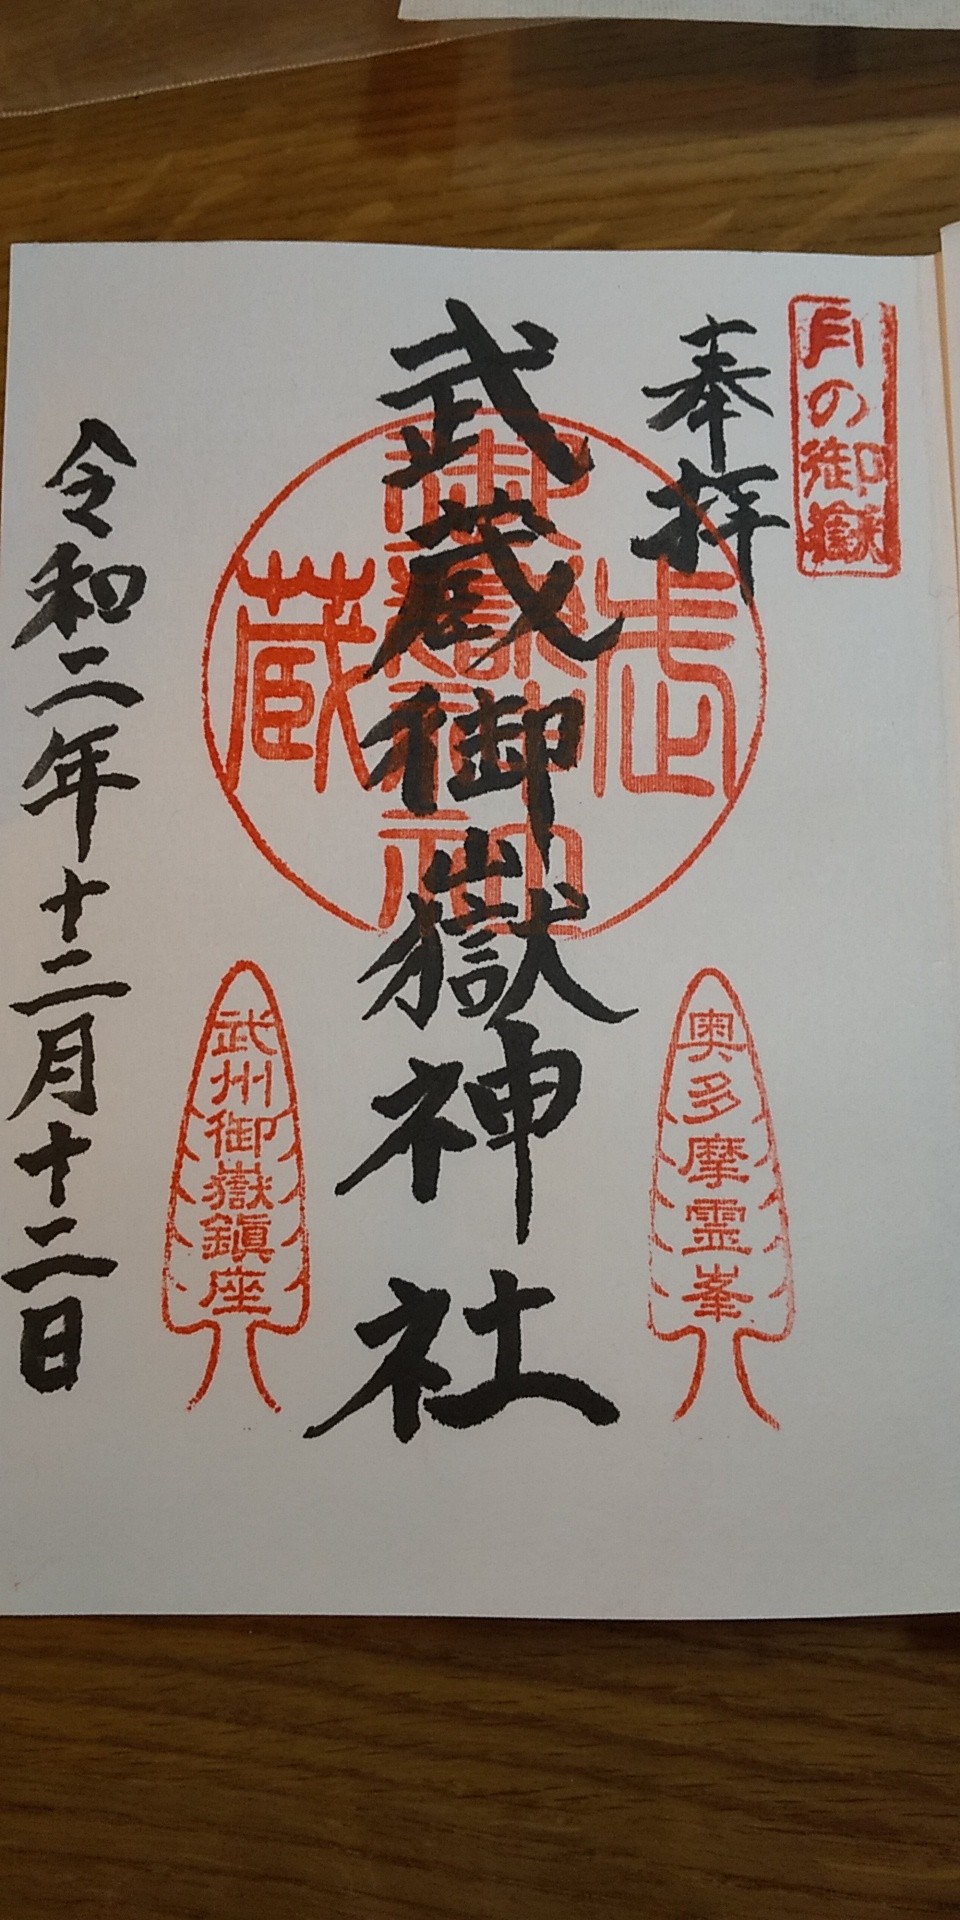 月の御嶽
奉拝
武蔵御嶽神社
奥多摩霊峯
武州御嶽鎮座
令和二年十二月十二日